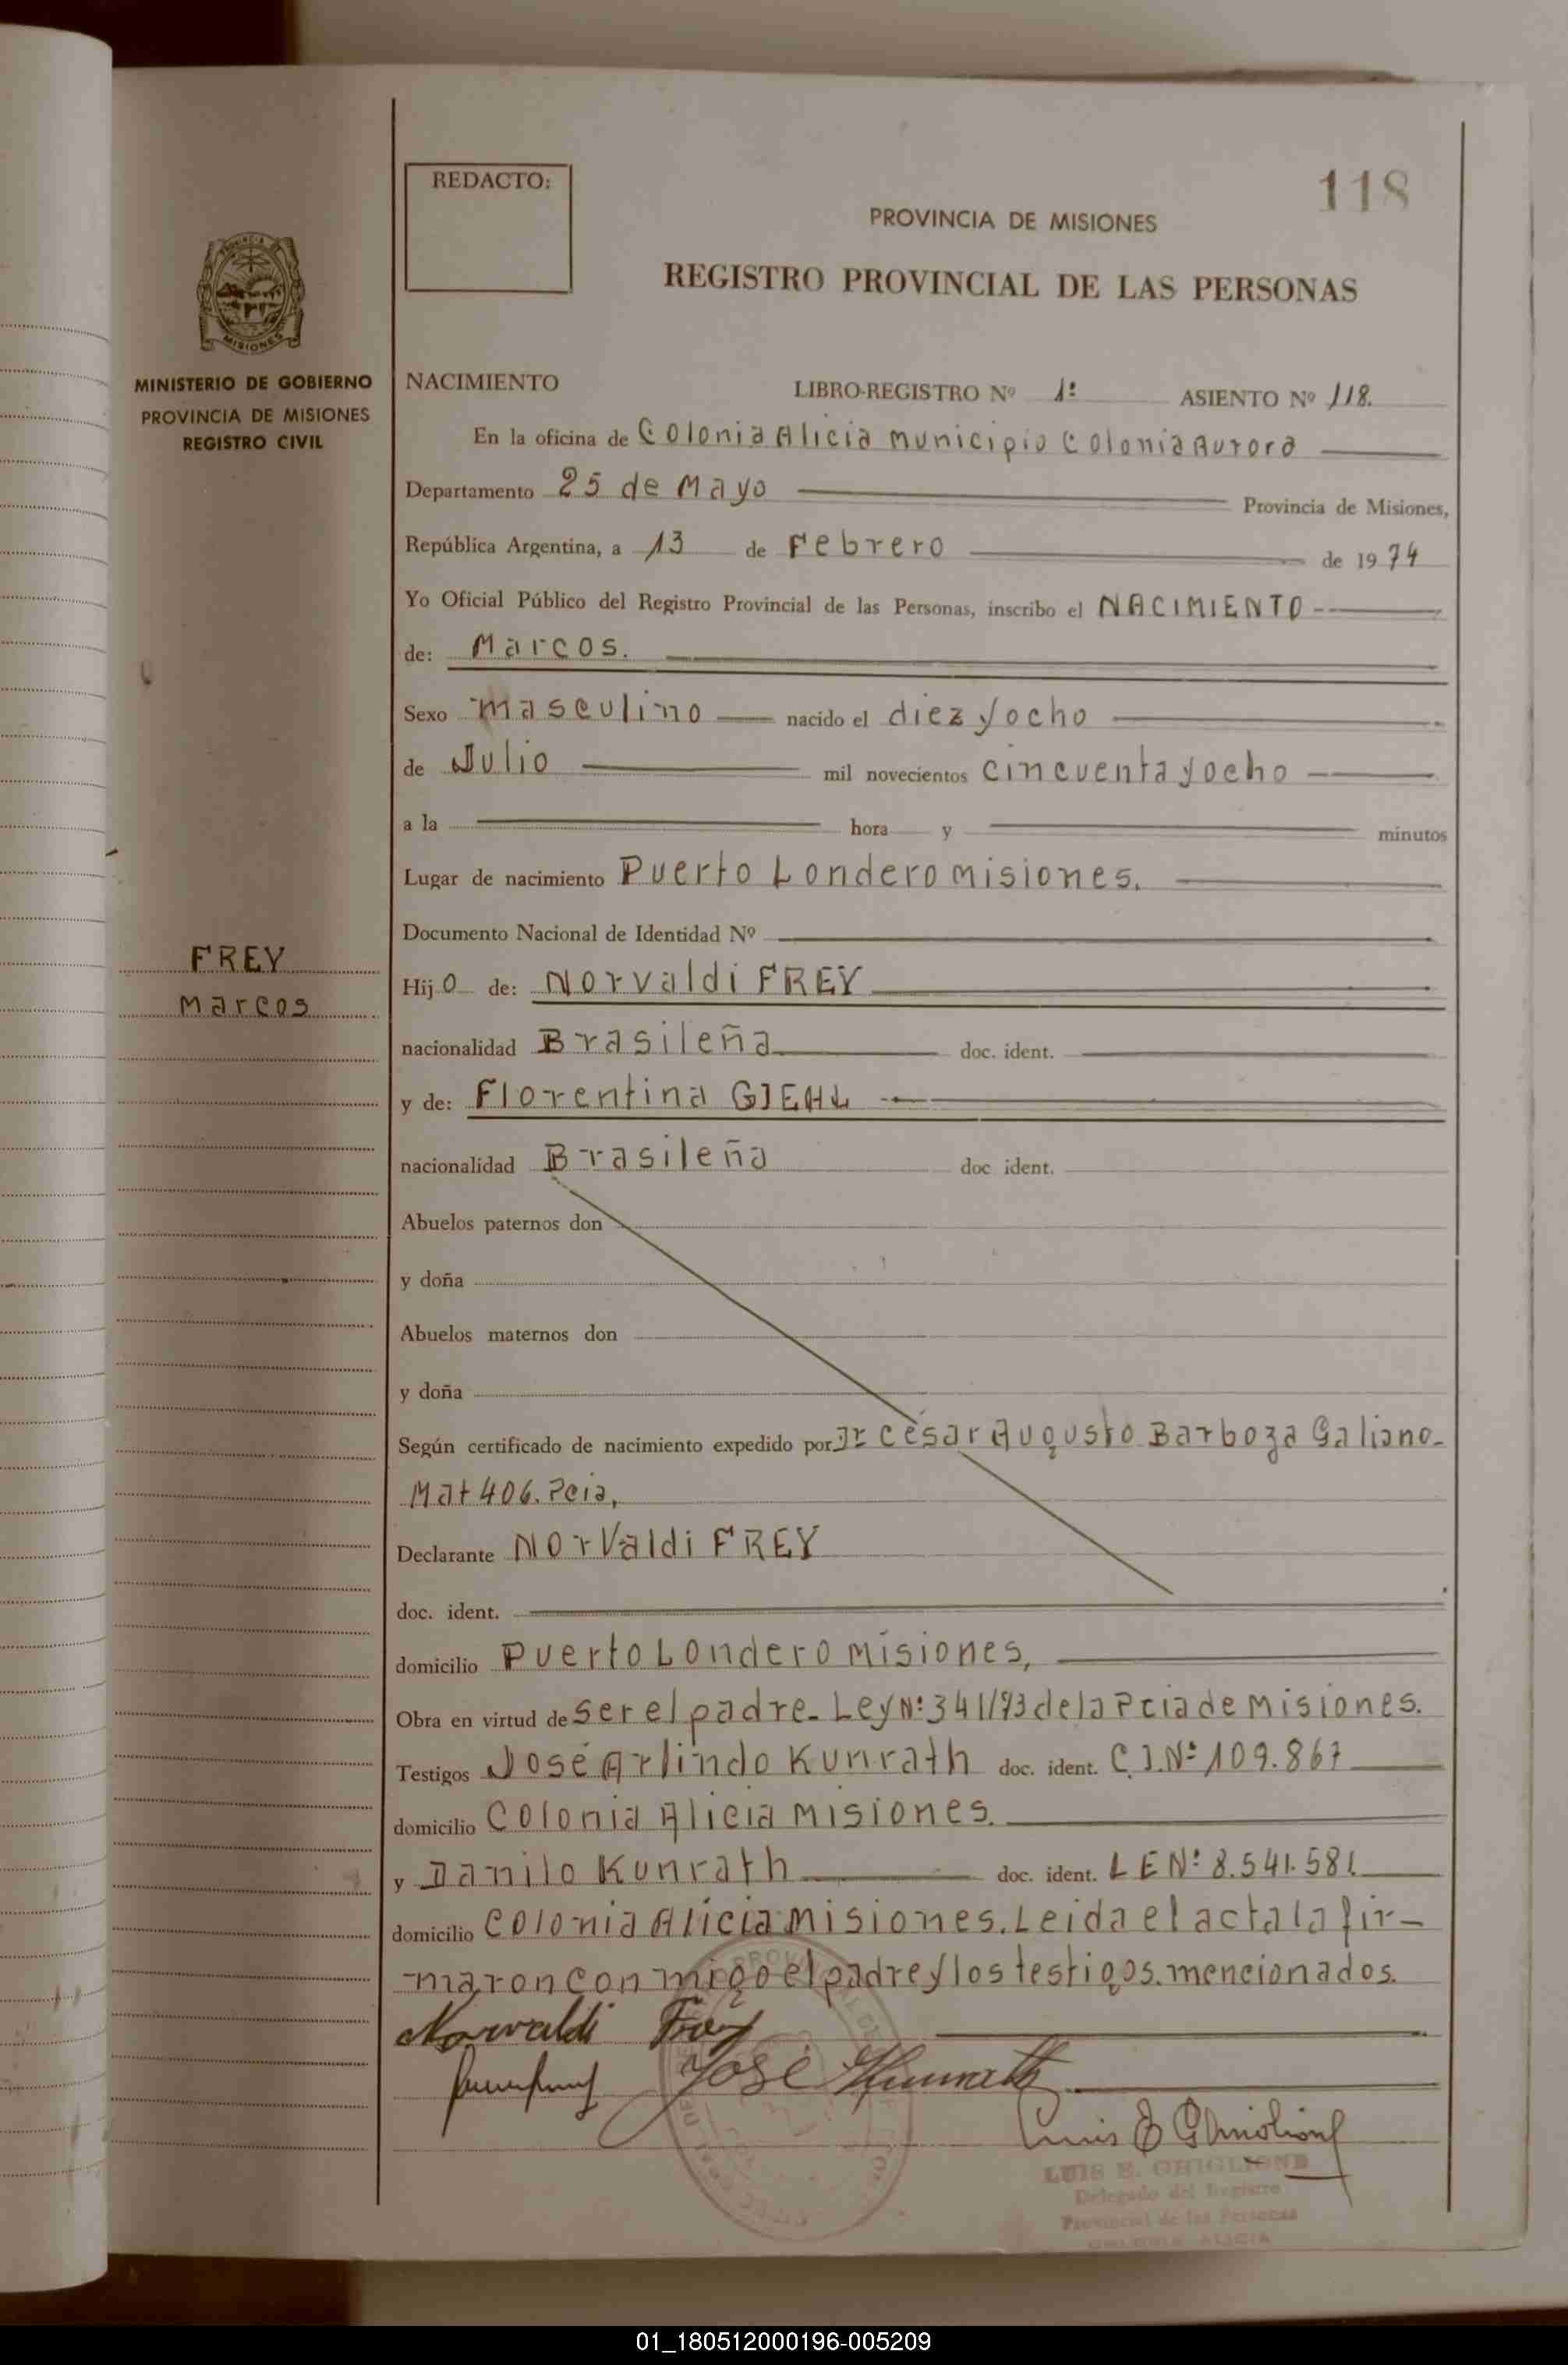 REDACTO:
118
PROVINCIA DE MISIONES
REGISTRO PROVINCIAL DE LAS PERSONAS
MISIONES
MINISTERIO DE GOBIERNO
PROVINCIA DE MISIONES
REGISTRO CIVIL
NACIMIENTO LIBRO-REGISTRO Nº 1º ASIENTO Nº 118.
En la oficina de Colonia Alicia Municipio Colonia Aurora
Departamento 25 de Mayo Provincia de Misiones,
República Argentina, a 13 de Febrero de 1974
Yo Oficial Público del Registro Provincial de las Personas, inscribo el NACIMIENTO
de: Marcos.
Sexo masculino nacido el diez y ocho
de Julio mil novecientos cincuenta y ocho
a la hora y minutos
Lugar de nacimiento Puerto Londero Misiones.
Documento Nacional de Identidad Nº
FREY
Marcos
Hijo de: Norvaldi FREY
nacionalidad Brasileña doc. ident.
y de: Florentina GIEHL
nacionalidad Brasileña doc. ident.
Abuelos paternos don
y doña
Abuelos maternos don
y doña
Según certificado de nacimiento expedido por Dr César Augusto Barboza Galiano-
Mat 406. Pcia,
Declarante Norvaldi FREY
doc. ident.
domicilio Puerto Londero Misiones,
Obra en virtud de ser el padre- Ley Nº 341/73 de la Pcia de Misiones.
Testigos José Arlindo Kunrath doc. ident. C.I.Nº 109.867
domicilio Colonia Alicia Misiones.
y Danilo Kunrath doc. ident. LE Nº 8.541.581
domicilio Colonia Alicia Misiones. Leida el acta la fir-
maron conmigo el padre y los testigos. mencionados.
Norvaldi Frey
José Kunrath
Luis E Ghiglione
LUIS E. GHIGLIONE
Delegado del Registro
Provincial de las Personas
COLONIA ALICIA
01_180512000196-005209